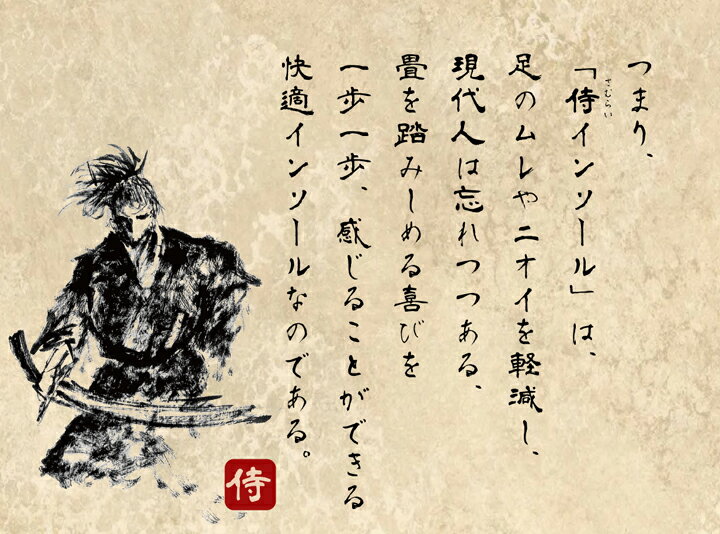 つまり、
「侍インソール」は、
さむらい
足のムレやニオイを軽減し、
現代人は忘れつつある、
畳を踏みしめる喜びを
一歩一歩、感じることができる
快適インソールなのである。
侍